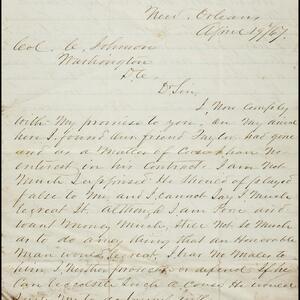 New Orleans
April 29/67.
Col. A. Johnson
Washington
D.C.
Dr Sir,
I, Now Comply
With My promise to you, on My arrival
here I found our friend Taylor had gone
and as a Matter of Course has no
interest in his Contract. I am Not
Much Surprised He should of played
false to Me, and I cannot Say I Much
regret it. Although I am Poor and
Want Money Much, Still Not So Much
as to do any thing that an Honorable
Man would regret. I bear No Malice to
him, I Neither or defend if he
Can Such a Course He would